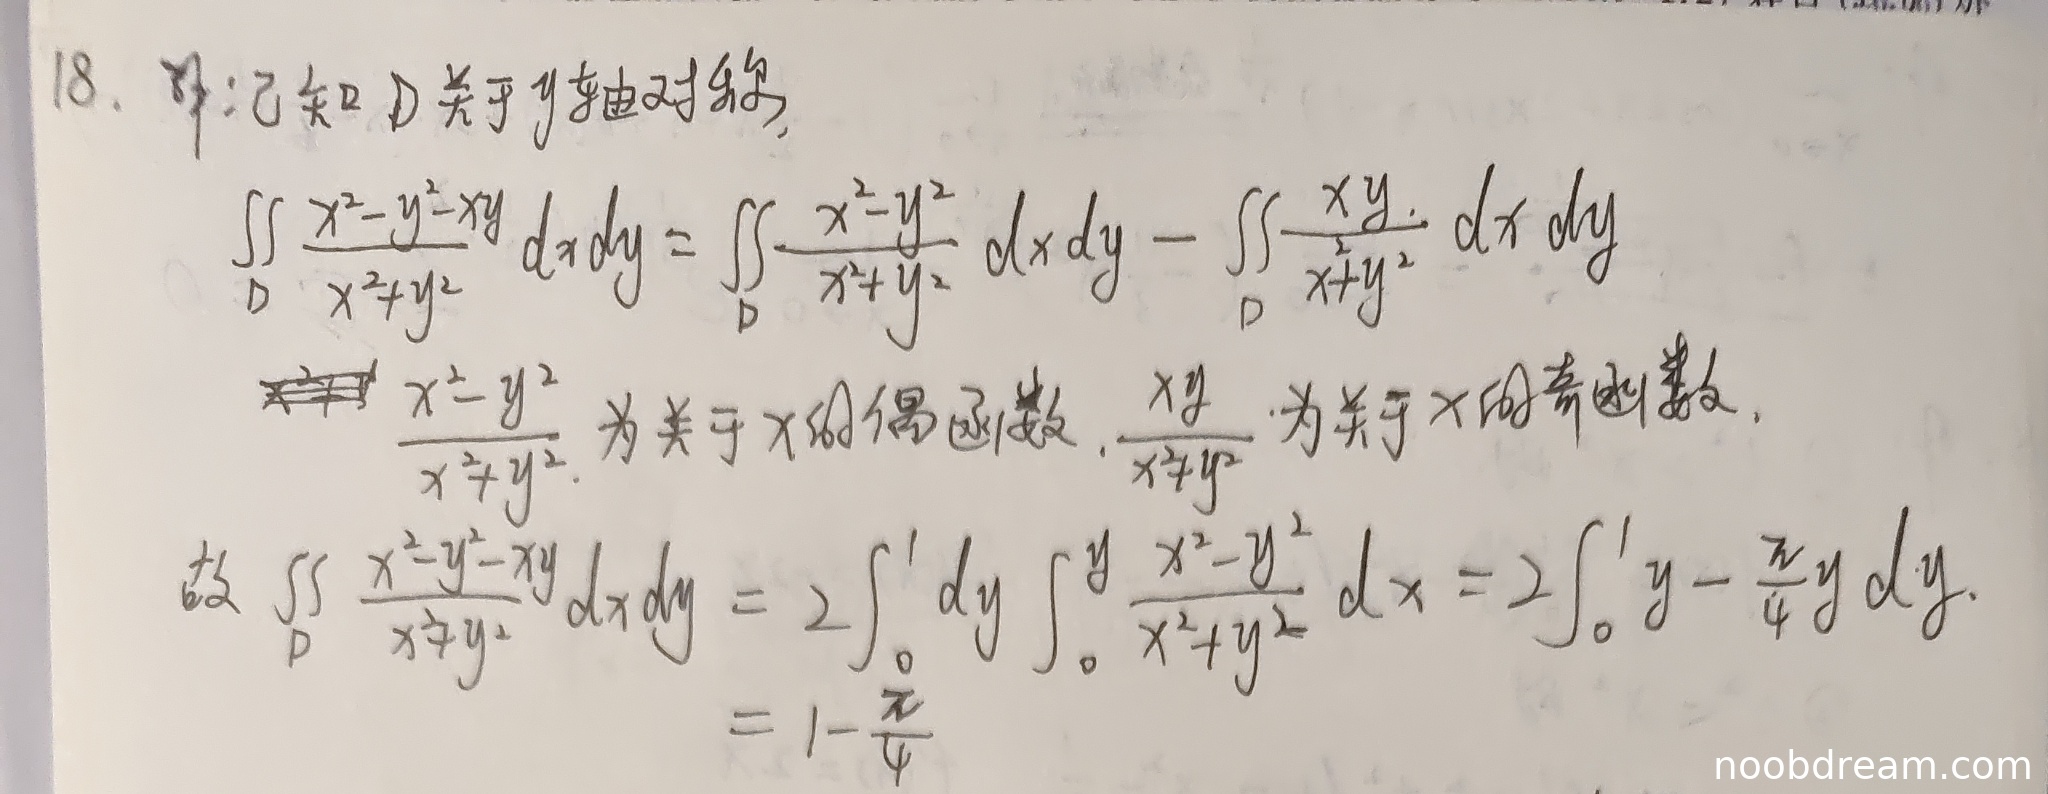 18. 解:已知 D 关于 y 轴对称,
∬_D (x²-y²-xy)/(x²+y²) dxdy = ∬_D (x²-y²)/(x²+y²) dxdy - ∬_D xy/(x²+y²) dxdy
(x²-y²)/(x²+y²) 为关于 x 的偶函数. xy/(x²+y²) 为关于 x 的奇函数.
故 ∬_D (x²-y²-xy)/(x²+y²) dxdy = 2∫₀¹ dy ∫₀^y (x²-y²)/(x²+y²) dx = 2∫₀¹ y - π/4 y dy.
= 1 - π/4
noobdream.com